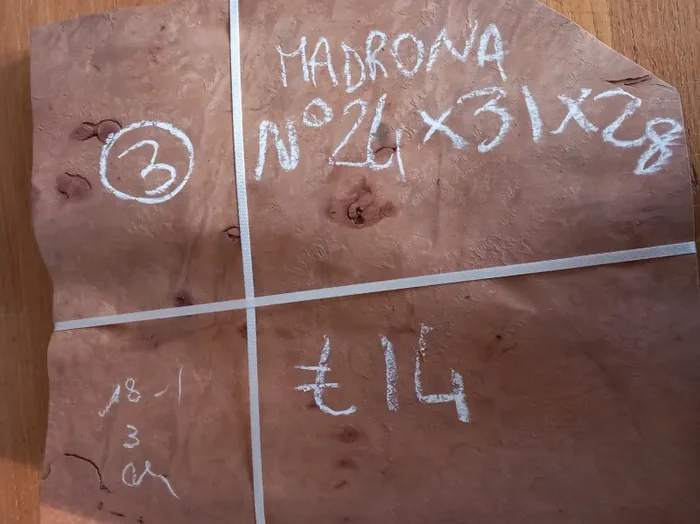 MADRONA
③
Nº 24 x 31 x 28
t 14
18-1
3